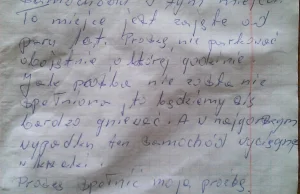 samochodem w tym miejscu.
To miejsce jest zajęte od
paru lat. Proszę nie parkować
obojętnie o której godzinie
Jak prośba nie zostanie
spełniona to będziemy się
bardzo gniewać. A w najgorszym
wypadku ten samochód wyciągnę
w
Proszę spełnić moją prośbę.